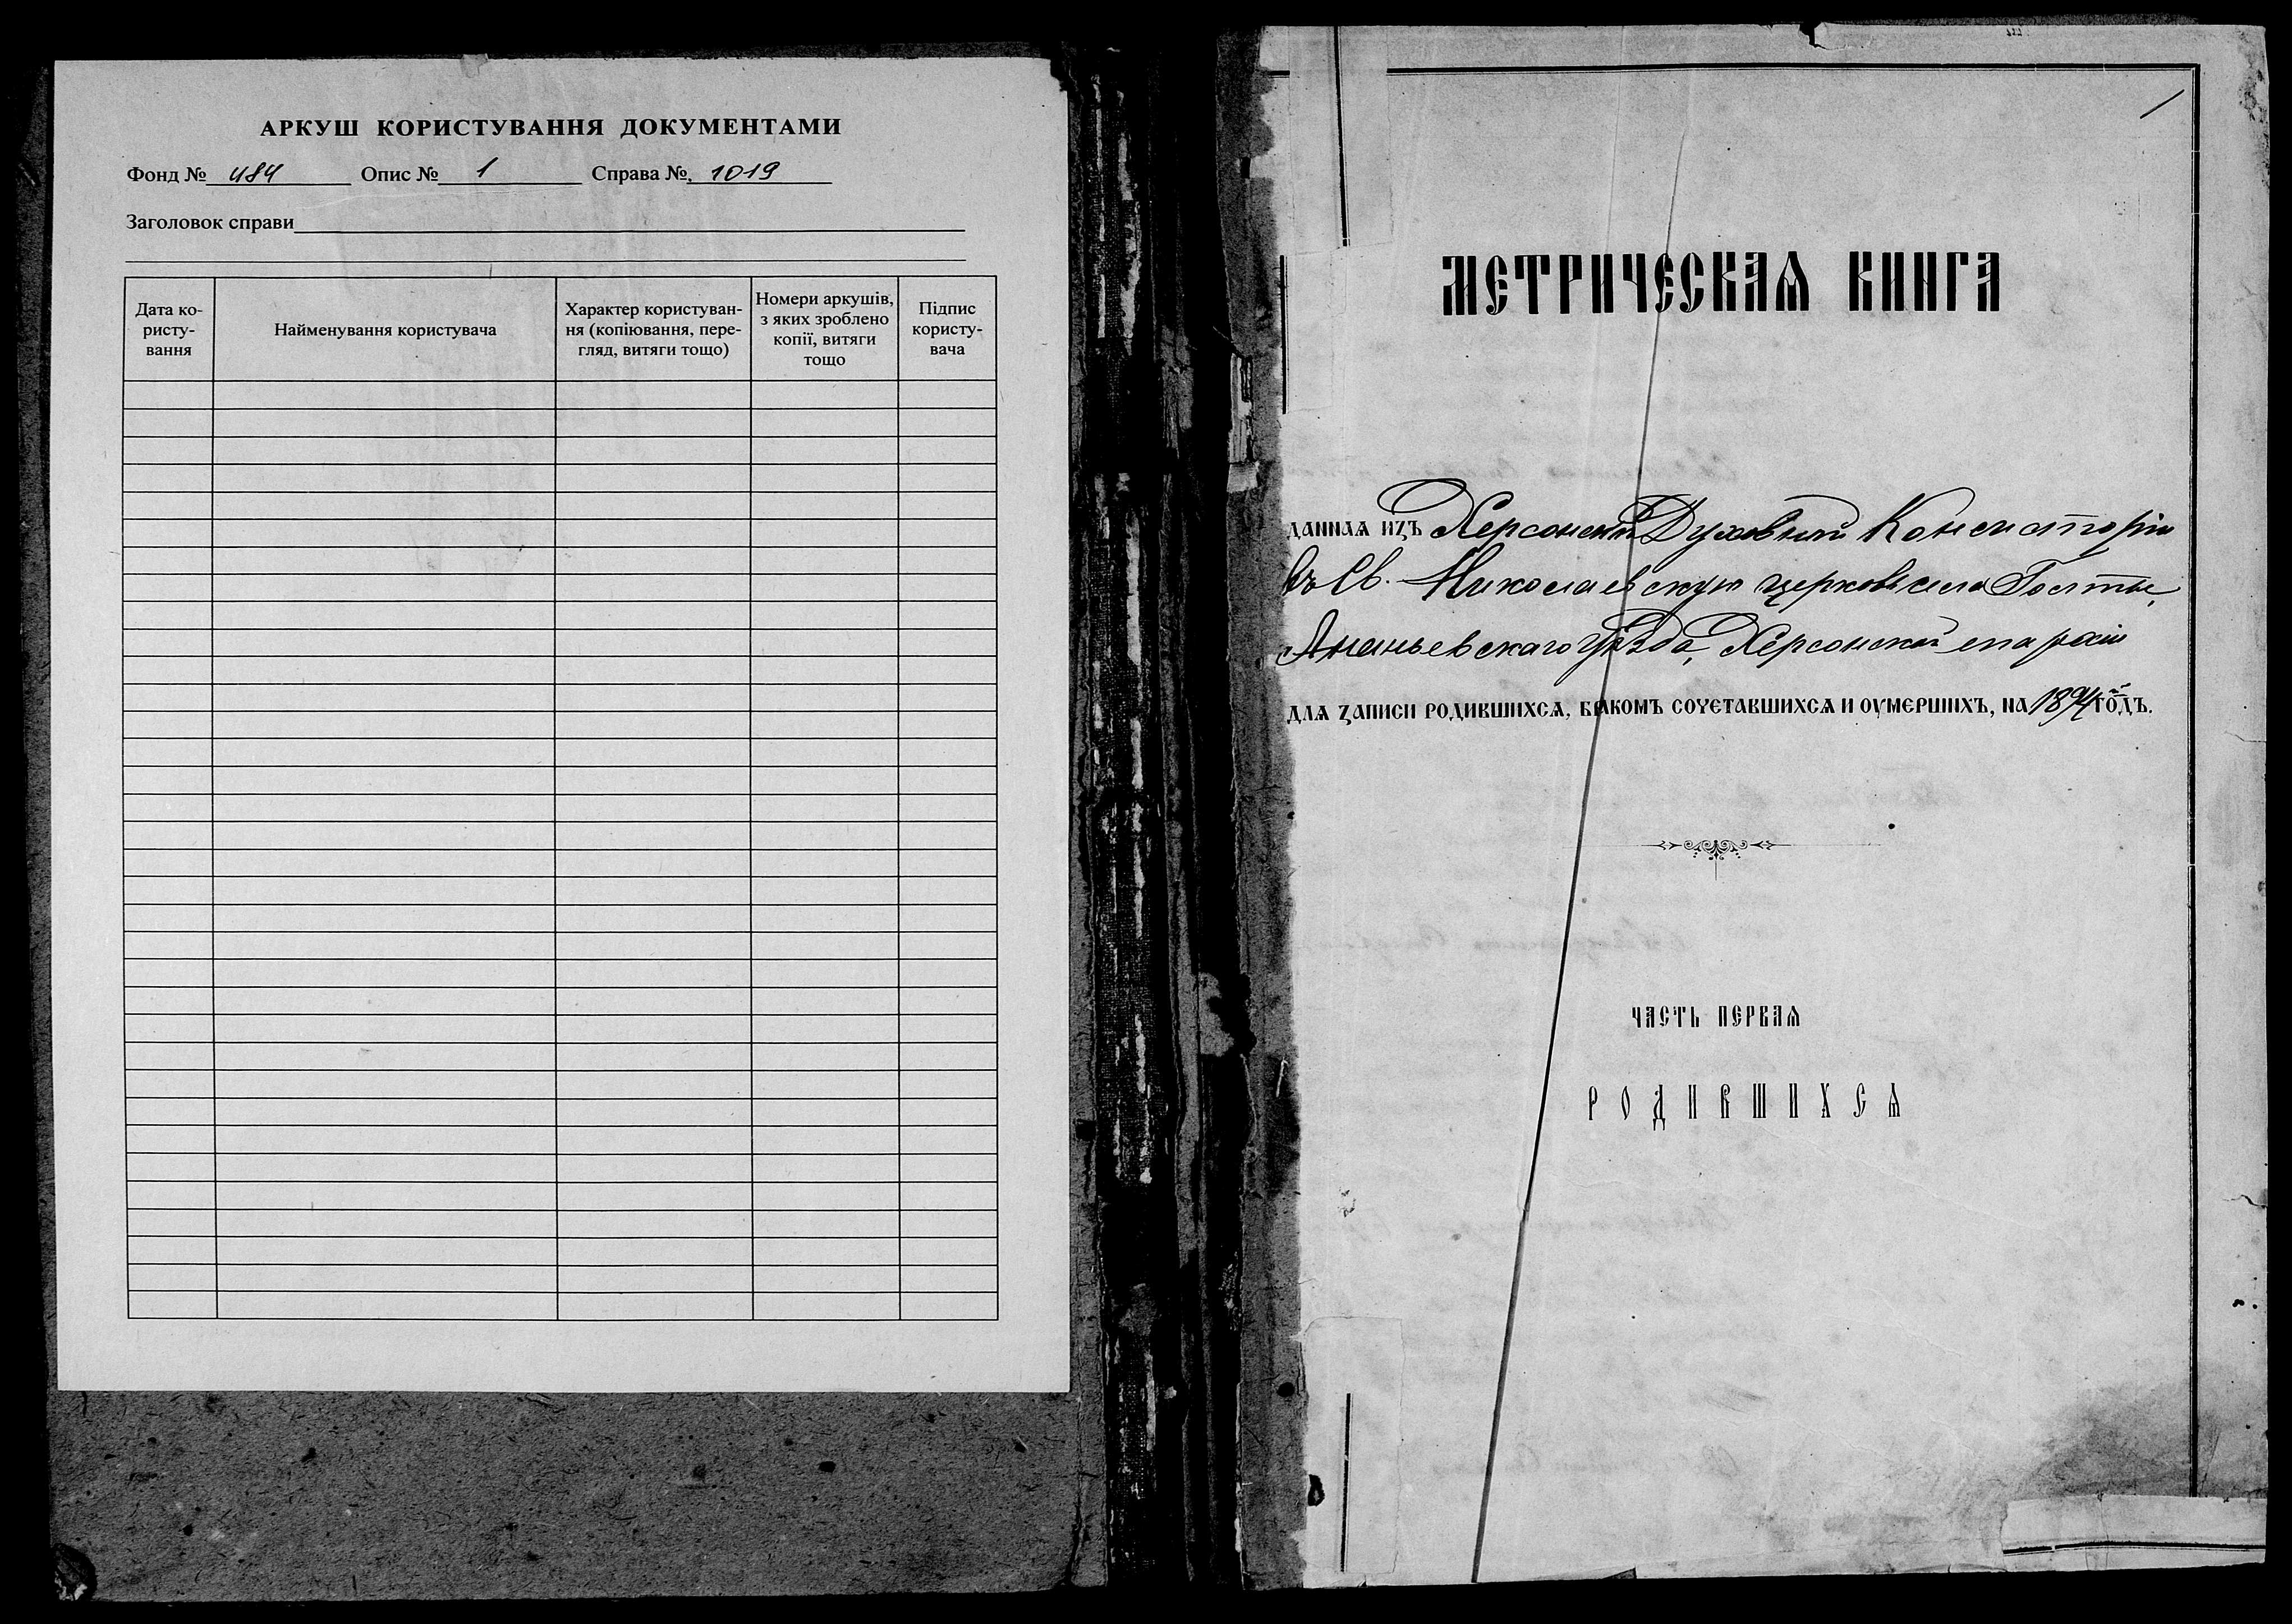 АРКУШ КОРИСТУВАННЯ ДОКУМЕНТАМИ
Фонд № 484 Опис № 1 Справа № 1019
Заголовок справи
Дата ко-
ристу-
вання
Найменування користувача
Характер користуван-
ня (копіювання, пере-
гляд, витяги тощо)
Номери аркушів,
з яких зроблено
копії, витяги
тощо
Підпис
користу-
вача
МЕТРИЧЕСКАѦ КНИГА
даннаѧ изъ Херсонской Духовной Консисторіи
въ Св. Николаевскую церковь села Голты,
Ананьевскаго уѣзда, Херсонской епархіи
длѧ записи родившихсѧ, бракомъ сочетавшихсѧ и оумершихъ, на 1894й годъ.
ЧАСТЬ ПЕРВАѦ
РОДИВШИХСѦ